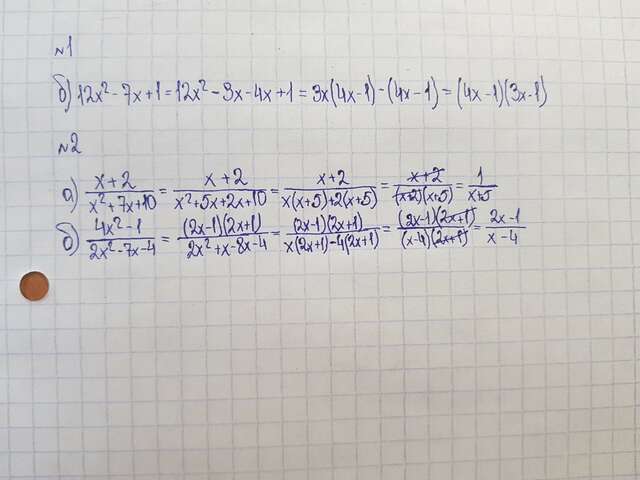 №1
б) 12x² - 7x + 1 = 12x² - 3x - 4x + 1 = 3x(4x-1) - (4x-1) = (4x-1)(3x-1)
№2
а) (x+2)/(x²+7x+10) = (x+2)/(x²+5x+2x+10) = (x+2)/(x(x+5)+2(x+5)) = (x+2)/((x+2)(x+5)) = 1/(x+5)
б) (4x²-1)/(2x²-7x-4) = ((2x-1)(2x+1))/(2x²+x-8x-4) = ((2x-1)(2x+1))/(x(2x+1)-4(2x+1)) = ((2x-1)(2x+1))/((x-4)(2x+1)) = (2x-1)/(x-4)